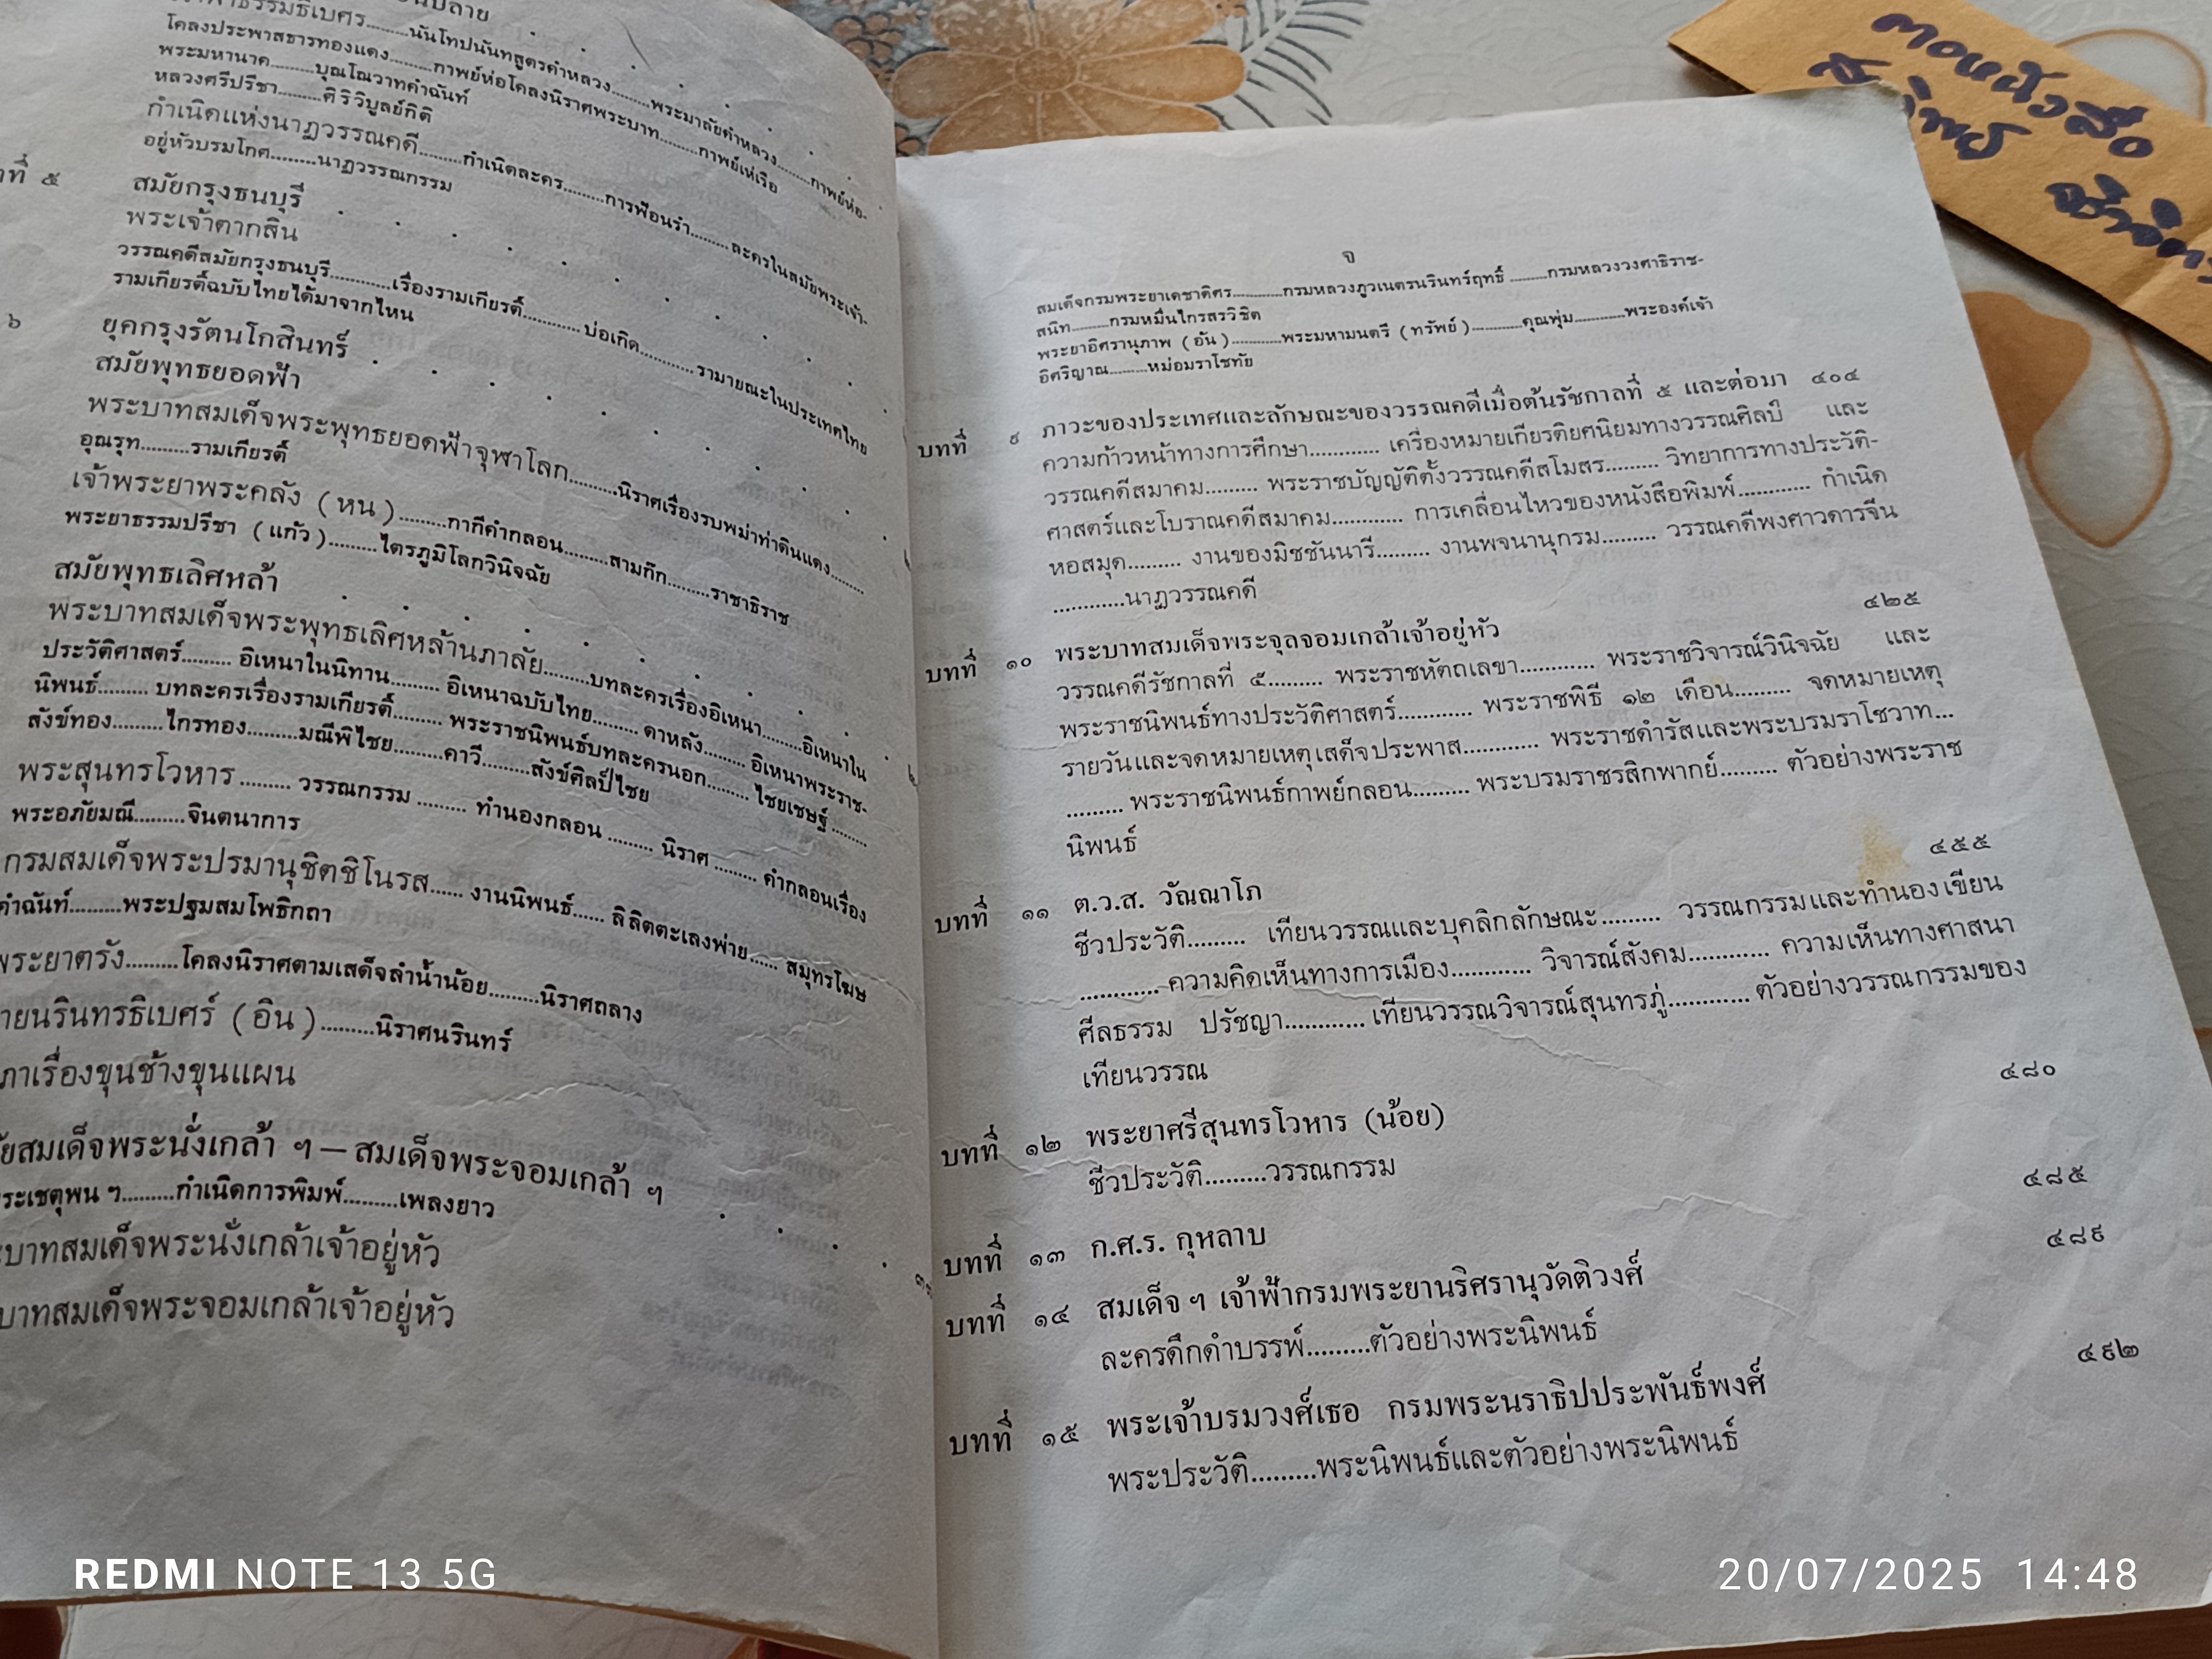 นันโทปนันทสูตรคำหลวง.........พระมาลัยคำหลวง.........กาพย์ห่อ-
โคลงประพาสธารทองแดง.........กาพย์ห่อโคลงนิราศพระบาท.........กาพย์เห่เรือ
พระมหานาค.........บุณโณวาทคำฉันท์
หลวงศรีปรีชา.........ศิริวิบูลย์กิติ
กำเนิดแห่งนาฏวรรณคดี.........กำเนิดละคร.........การฟ้อนรำ.........ละครในสมัยพระเจ้า-
อยู่หัวบรมโกศ.........นาฏวรรณกรรม
ที่ ๕ สมัยกรุงธนบุรี
พระเจ้าตากสิน
วรรณคดีสมัยกรุงธนบุรี............เรื่องรามเกียรติ์............บ่อเกิด............รามายณะในประเทศไทย
รามเกียรติ์ฉบับไทยได้มาจากไหน
๖ ยุคกรุงรัตนโกสินทร์
สมัยพุทธยอดฟ้า
พระบาทสมเด็จพระพุทธยอดฟ้าจุฬาโลก.........นิราศเรื่องรบพม่าท่าดินแดง.........
อุณรุท.........รามเกียรติ์
เจ้าพระยาพระคลัง (หน).........กากีคำกลอน.........สามก๊ก.........ราชาธิราช
พระยาธรรมปรีชา (แก้ว).........ไตรภูมิโลกวินิจฉัย
สมัยพุทธเลิศหล้า
พระบาทสมเด็จพระพุทธเลิศหล้านภาลัย.........บทละครเรื่องอิเหนา.........อิเหนาใน
ประวัติศาสตร์......... อิเหนาในนิทาน......... อิเหนาฉบับไทย......... ดาหลัง......... อิเหนาพระราช-
นิพนธ์......... บทละครเรื่องรามเกียรติ์......... พระราชนิพนธ์บทละครนอก......... ไชยเชษฐ์.........
สังข์ทอง.........ไกรทอง.........มณีพิไชย.........คาวี.........สังข์ศิลป์ไชย
พระสุนทรโวหาร......... วรรณกรรม......... ทำนองกลอน......... นิราศ......... คำกลอนเรื่อง
พระอภัยมณี.........จินตนาการ
กรมสมเด็จพระปรมานุชิตชิโนรส...... งานนิพนธ์...... ลิลิตตะเลงพ่าย...... สมุทรโฆษ
คำฉันท์.........พระปฐมสมโพธิกถา
พระยาตรัง.........โคลงนิราศตามเสด็จลำน้ำน้อย.........นิราศถลาง
นายนรินทรธิเบศร์ (อิน).........นิราศนรินทร์
เรื่องขุนช้างขุนแผน
สมเด็จพระนั่งเกล้า ฯ — สมเด็จพระจอมเกล้า ฯ
พระเชตุพน ฯ.........กำเนิดการพิมพ์.........เพลงยาว
บาทสมเด็จพระนั่งเกล้าเจ้าอยู่หัว
บาทสมเด็จพระจอมเกล้าเจ้าอยู่หัว
จ
สมเด็จกรมพระยาเดชาดิศร............กรมหลวงภูวเนตรนรินทร์ฤทธิ์.........กรมหลวงวงศาธิราช-
สนิท.........กรมหมื่นไกรสรวิชิต
พระยาอิศรานุภาพ (อ้น)............พระมหามนตรี (ทรัพย์)............คุณพุ่ม............พระองค์เจ้า
อิศริญาณ.........หม่อมราโชทัย
บทที่ ๙ ภาวะของประเทศและลักษณะของวรรณคดีเมื่อต้นรัชกาลที่ ๕ และต่อมา ๔๐๔
ความก้าวหน้าทางการศึกษา............ เครื่องหมายเกียรติยศนิยมทางวรรณศิลป์ และ
วรรณคดีสมาคม......... พระราชบัญญัติตั้งวรรณคดีสโมสร......... วิทยาการทางประวัติ-
ศาสตร์และโบราณคดีสมาคม............ การเคลื่อนไหวของหนังสือพิมพ์............ กำเนิด
หอสมุด......... งานของมิชชันนารี......... งานพจนานุกรม......... วรรณคดีพงศาวดารจีน
............นาฏวรรณคดี
บทที่ ๑๐ พระบาทสมเด็จพระจุลจอมเกล้าเจ้าอยู่หัว ๔๒๕
วรรณคดีรัชกาลที่ ๕......... พระราชหัตถเลขา............ พระราชวิจารณ์วินิจฉัย และ
พระราชนิพนธ์ทางประวัติศาสตร์............ พระราชพิธี ๑๒ เดือน......... จดหมายเหตุ
รายวันและจดหมายเหตุเสด็จประพาส............ พระราชดำรัสและพระบรมราโชวาท...
......... พระราชนิพนธ์กาพย์กลอน......... พระบรมราชรสิกพากย์......... ตัวอย่างพระราช
นิพนธ์
บทที่ ๑๑ ต.ว.ส. วัณณาโภ ๔๕๕
ชีวประวัติ......... เทียนวรรณและบุคลิกลักษณะ......... วรรณกรรมและทำนองเขียน
............ ความคิดเห็นทางการเมือง............ วิจารณ์สังคม............ ความเห็นทางศาสนา
ศีลธรรม ปรัชญา............ เทียนวรรณวิจารณ์สุนทรภู่............ ตัวอย่างวรรณกรรมของ
เทียนวรรณ
บทที่ ๑๒ พระยาศรีสุนทรโวหาร (น้อย) ๔๘๐
ชีวประวัติ.........วรรณกรรม
บทที่ ๑๓ ก.ศ.ร. กุหลาบ ๔๘๕
บทที่ ๑๔ สมเด็จ ฯ เจ้าฟ้ากรมพระยานริศรานุวัดติวงศ์ ๔๘๙
ละครดึกดำบรรพ์.........ตัวอย่างพระนิพนธ์
บทที่ ๑๕ พระเจ้าบรมวงศ์เธอ กรมพระนราธิปประพันธ์พงศ์ ๔๙๒
พระประวัติ.........พระนิพนธ์และตัวอย่างพระนิพนธ์
REDMI NOTE 13 5G
20/07/2025 14:48